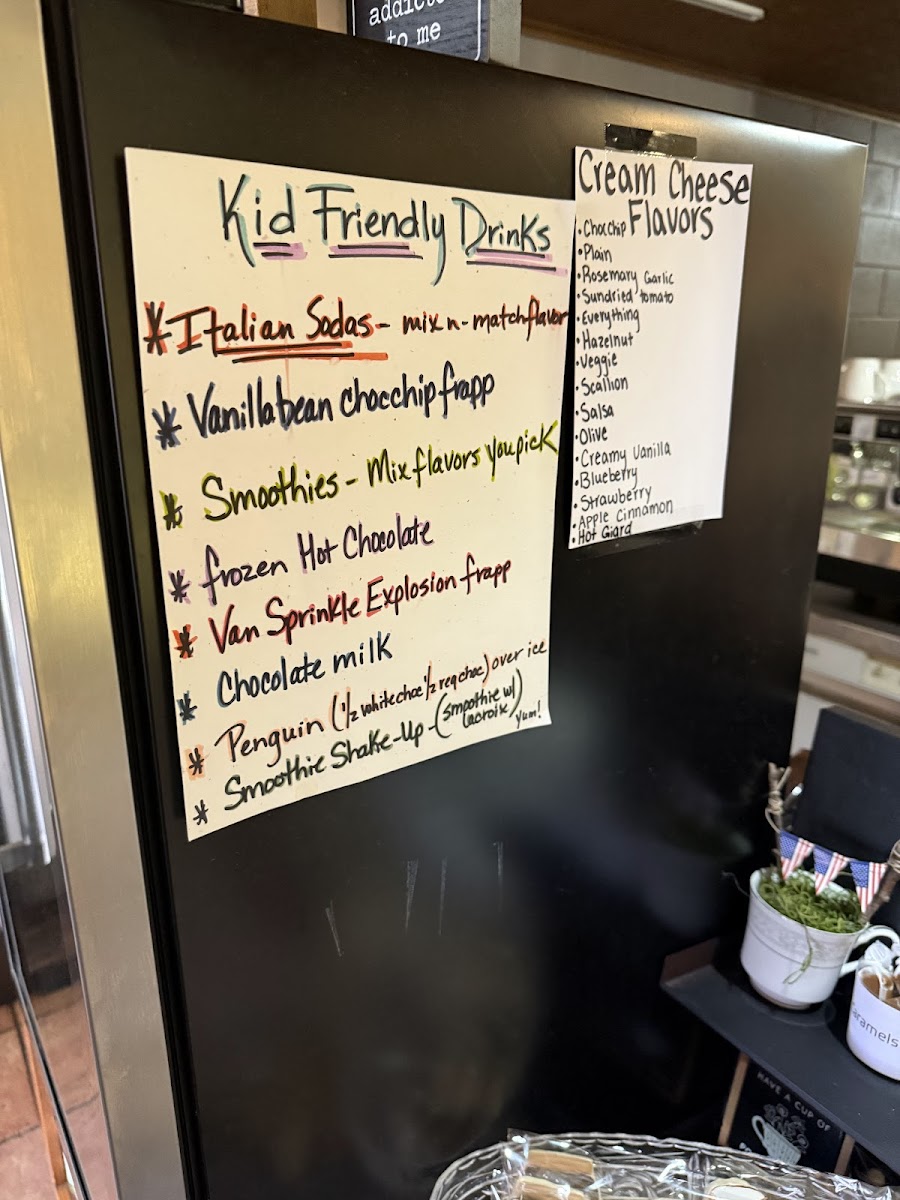 addicte
to me
Kid Friendly Drinks
* Italian Sodas - mix n-match flavor
* Vanillabean chocchip frapp
* Smoothies - Mix flavors you pick
* frozen Hot Chocolate
* Van Sprinkle Explosion frapp
* Chocolate milk
* Penguin (1/2 white choc 1/2 reg choc) over ice
* Smoothie Shake-Up - (smoothie w/ lacroix) yum!
Cream Cheese
Flavors
• Chocchip
• Plain
• Rosemary Garlic
• Sundried tomato
• Everything
• Hazelnut
• Veggie
• Scallion
• Salsa
• Olive
• Creamy Vanilla
• Blueberry
• Strawberry
• Apple Cinnamon
• Hot Giard
aramels
HAVE A CUP OF